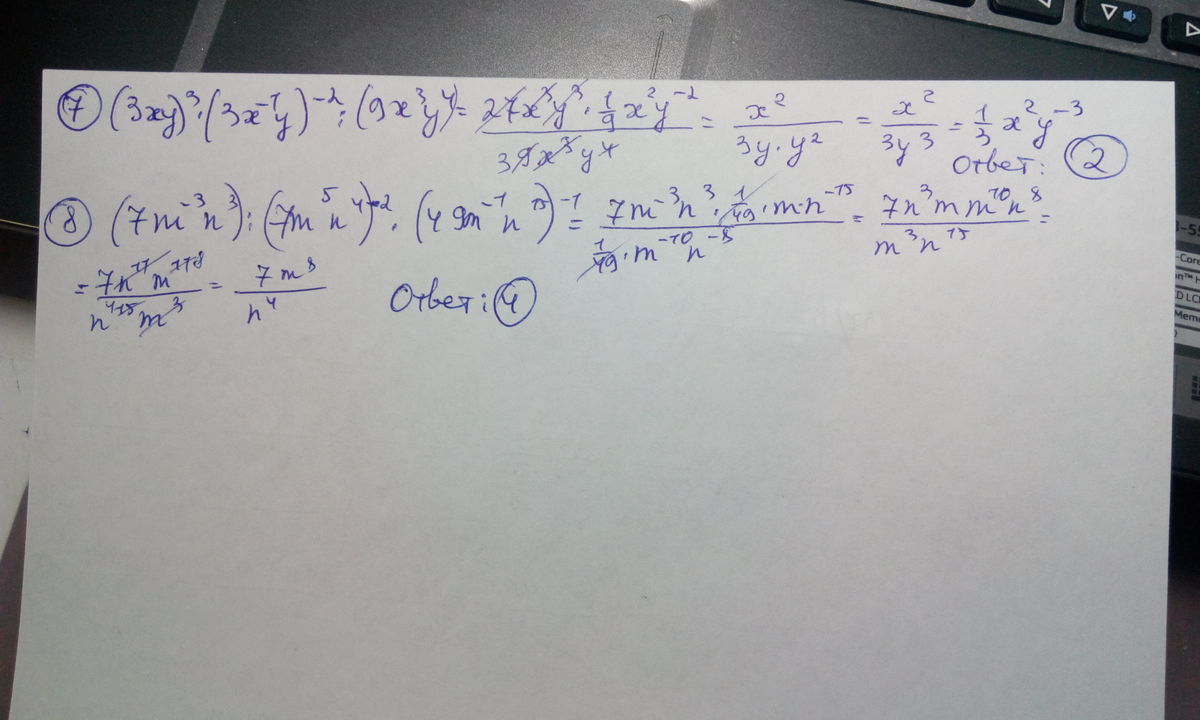 ⑦ (3xy)³·(3x⁻¹y)⁻²:(9x³y⁴) = 27x³y³·1/9x²y⁻² / 3 9x³y⁴ = x² / 3y·y² = x² / 3y³ = 1/3 x²y⁻³
Ответ: ②
⑧ (7m⁻³n³):(7m⁵n⁴)⁻²·(49m⁻¹n¹⁵)⁻¹ = 7m⁻³n³·1/49·m·n⁻¹⁵ / 1/49·m⁻¹⁰n⁻⁸ = 7n³m m¹⁰n⁸ / m³n¹⁵ =
= 7n¹¹m¹¹ ⁸ / n⁴ ¹⁵m³ = 7m⁸ / n⁴ Ответ: ④